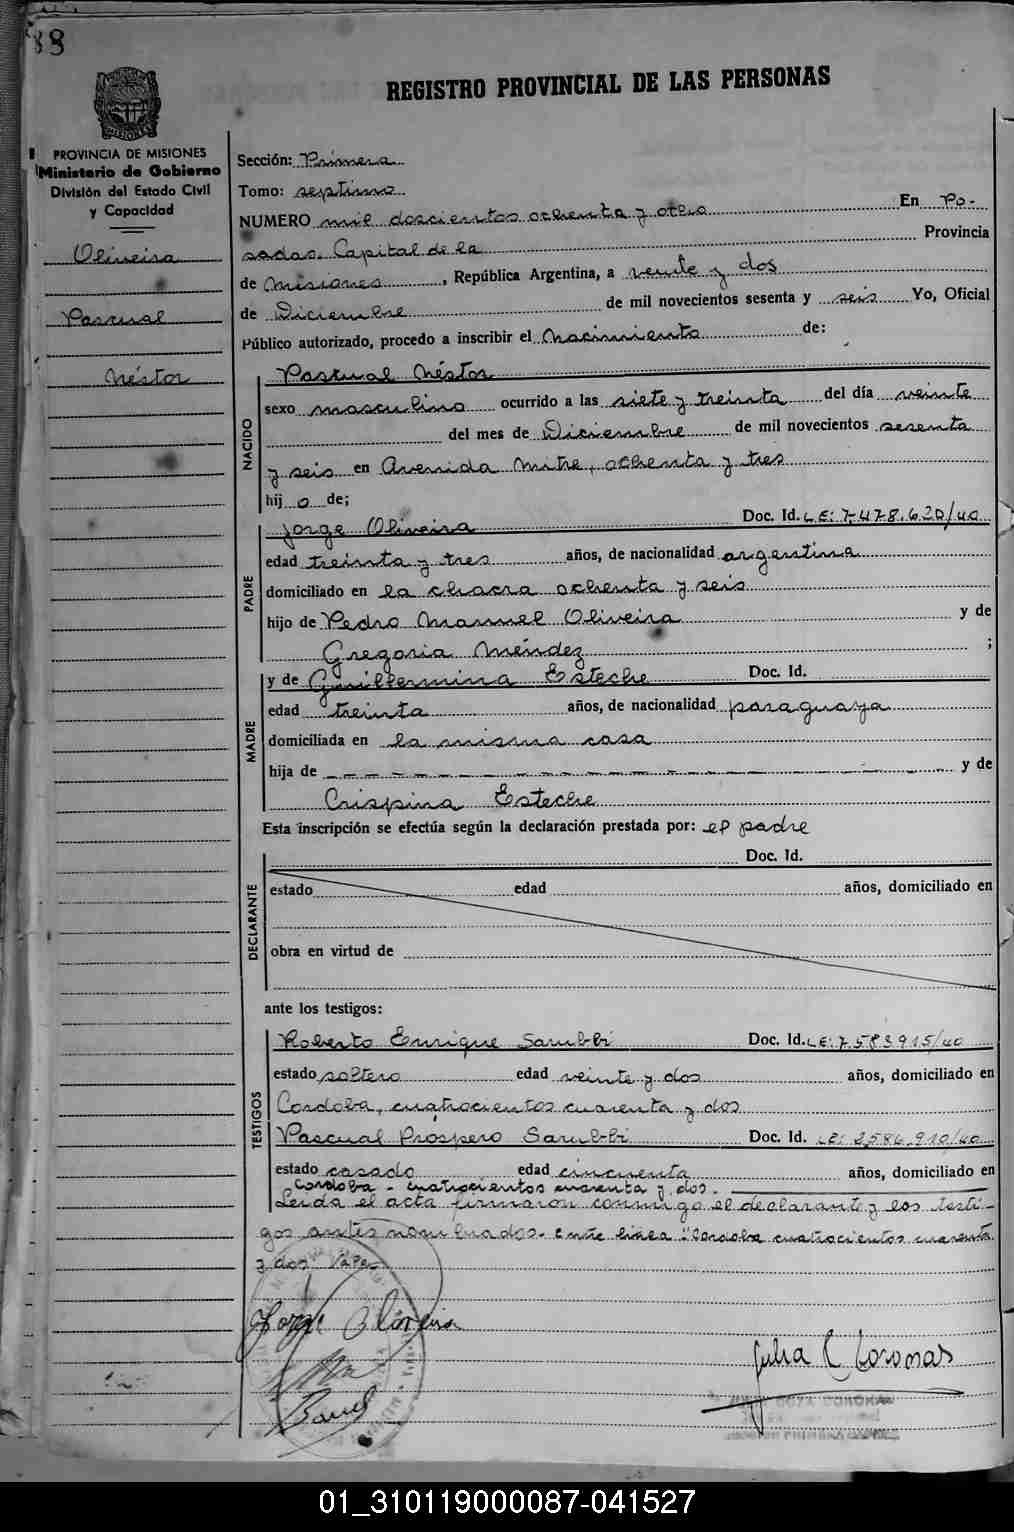 88
REGISTRO PROVINCIAL DE LAS PERSONAS
PROVINCIA DE MISIONES
Ministerio de Gobierno
División del Estado Civil
y Capacidad
Oliveira
Pascual
Néstor
Sección: Primera
Tomo: septimo
NUMERO mil doscientos ochenta y ocho En Po-
sadas. Capital de la Provincia
de Misiones, República Argentina, a veinte y dos
de Diciembre de mil novecientos sesenta y seis Yo, Oficial
Público autorizado, procedo a inscribir el Nacimiento de:
NACIDO
Pascual Néstor
sexo masculino ocurrido a las siete y treinta del día veinte
del mes de Diciembre de mil novecientos sesenta
y seis en Avenida Mitre, ochenta y tres
hijo de;
PADRE
Jorge Oliveira Doc. Id. LE: 7.478.620/40
edad treinta y tres años, de nacionalidad argentina
domiciliado en la chacra ochenta y seis
hijo de Pedro Manuel Oliveira y de
Gregoria Méndez ;
MADRE
y de Guillermina Esteche Doc. Id.
edad treinta años, de nacionalidad paraguaya
domiciliada en la misma casa
hija de - - - - - - - - - - - - - - - y de
Crispina Esteche
Esta inscripción se efectúa según la declaración prestada por: el padre
DECLARANTE
Doc. Id.
estado edad años, domiciliado en
obra en virtud de
ante los testigos:
TESTIGOS
Roberto Enrique Sarubbi Doc. Id. LE: 7583915/40
estado soltero edad veinte y dos años, domiciliado en
Cordoba, cuatrocientos cuarenta y dos
Pascual Próspero Sarubbi Doc. Id. LE: 2584.910/40
estado casado edad cincuenta años, domiciliado en
Cordoba - cuatrocientos cuarenta y dos.
Leida el acta firmaron conmigo el declarante y los testi-
gos antes nombrados. Entre linea: "Cordoba cuatrocientos cuarenta
y dos" Vale.
Jorge Oliveira
Julia C Coronas
01_310119000087-041527